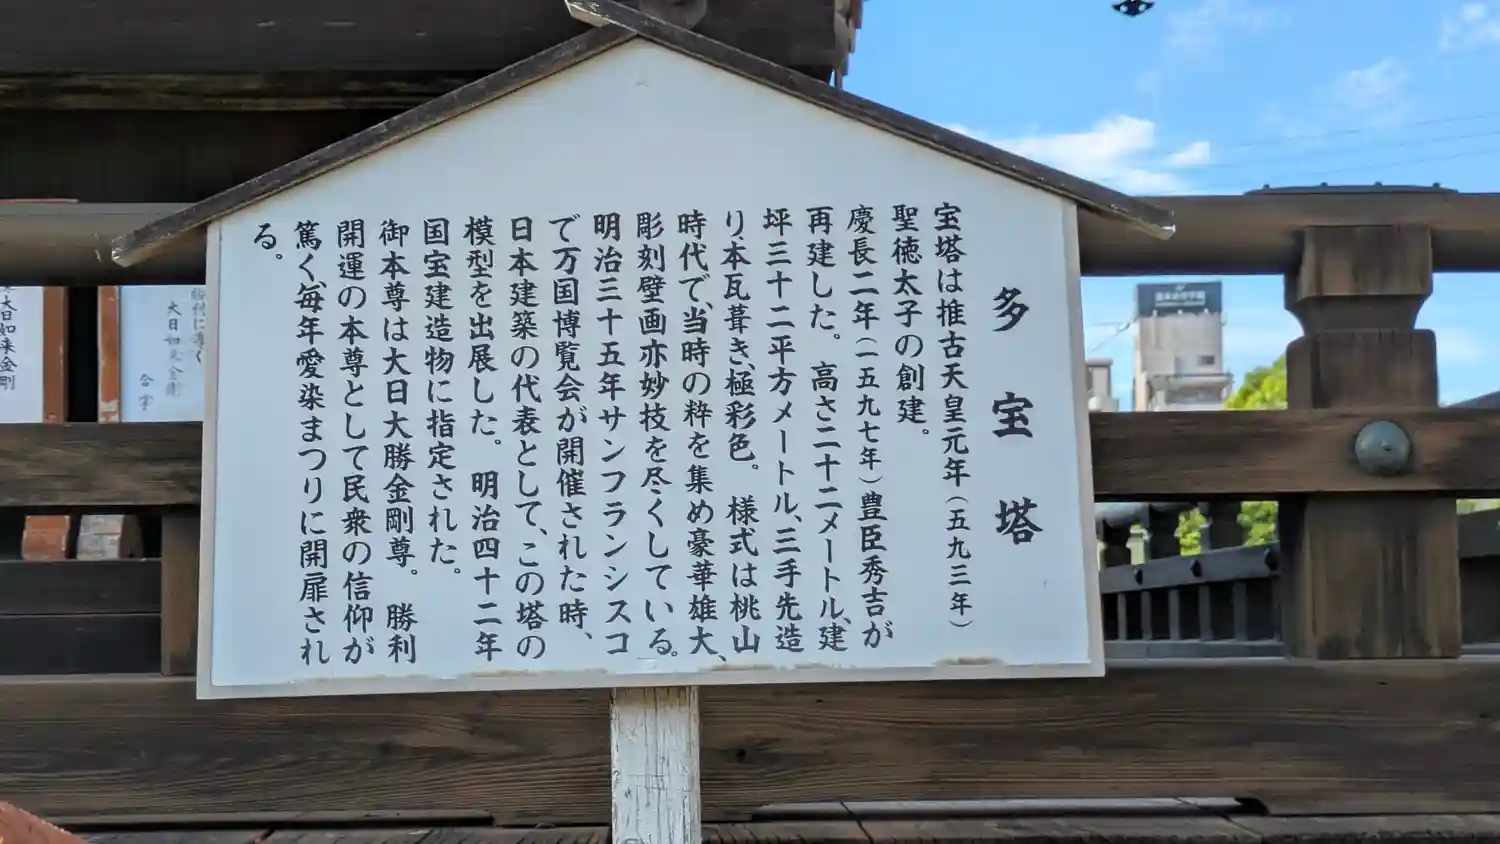 多宝塔
宝塔は推古天皇元年（五九三年）
聖徳太子の創建。
慶長二年（一五九七年）豊臣秀吉が
再建した。高さ二十二メートル、建
坪三十二平方メートル、三手先造
り本瓦葺き、極彩色。様式は桃山
時代で、当時の粋を集め豪華雄大、
彫刻壁画亦妙技を尽くしている。
明治三十五年サンフランシスコ
で万国博覧会が開催された時、
日本建築の代表として、この塔の
模型を出展した。明治四十二年
国宝建造物に指定された。
御本尊は大日大勝金剛尊。勝利
開運の本尊として民衆の信仰が
篤く、毎年愛染まつりに開扉され
る。
大日如来金剛